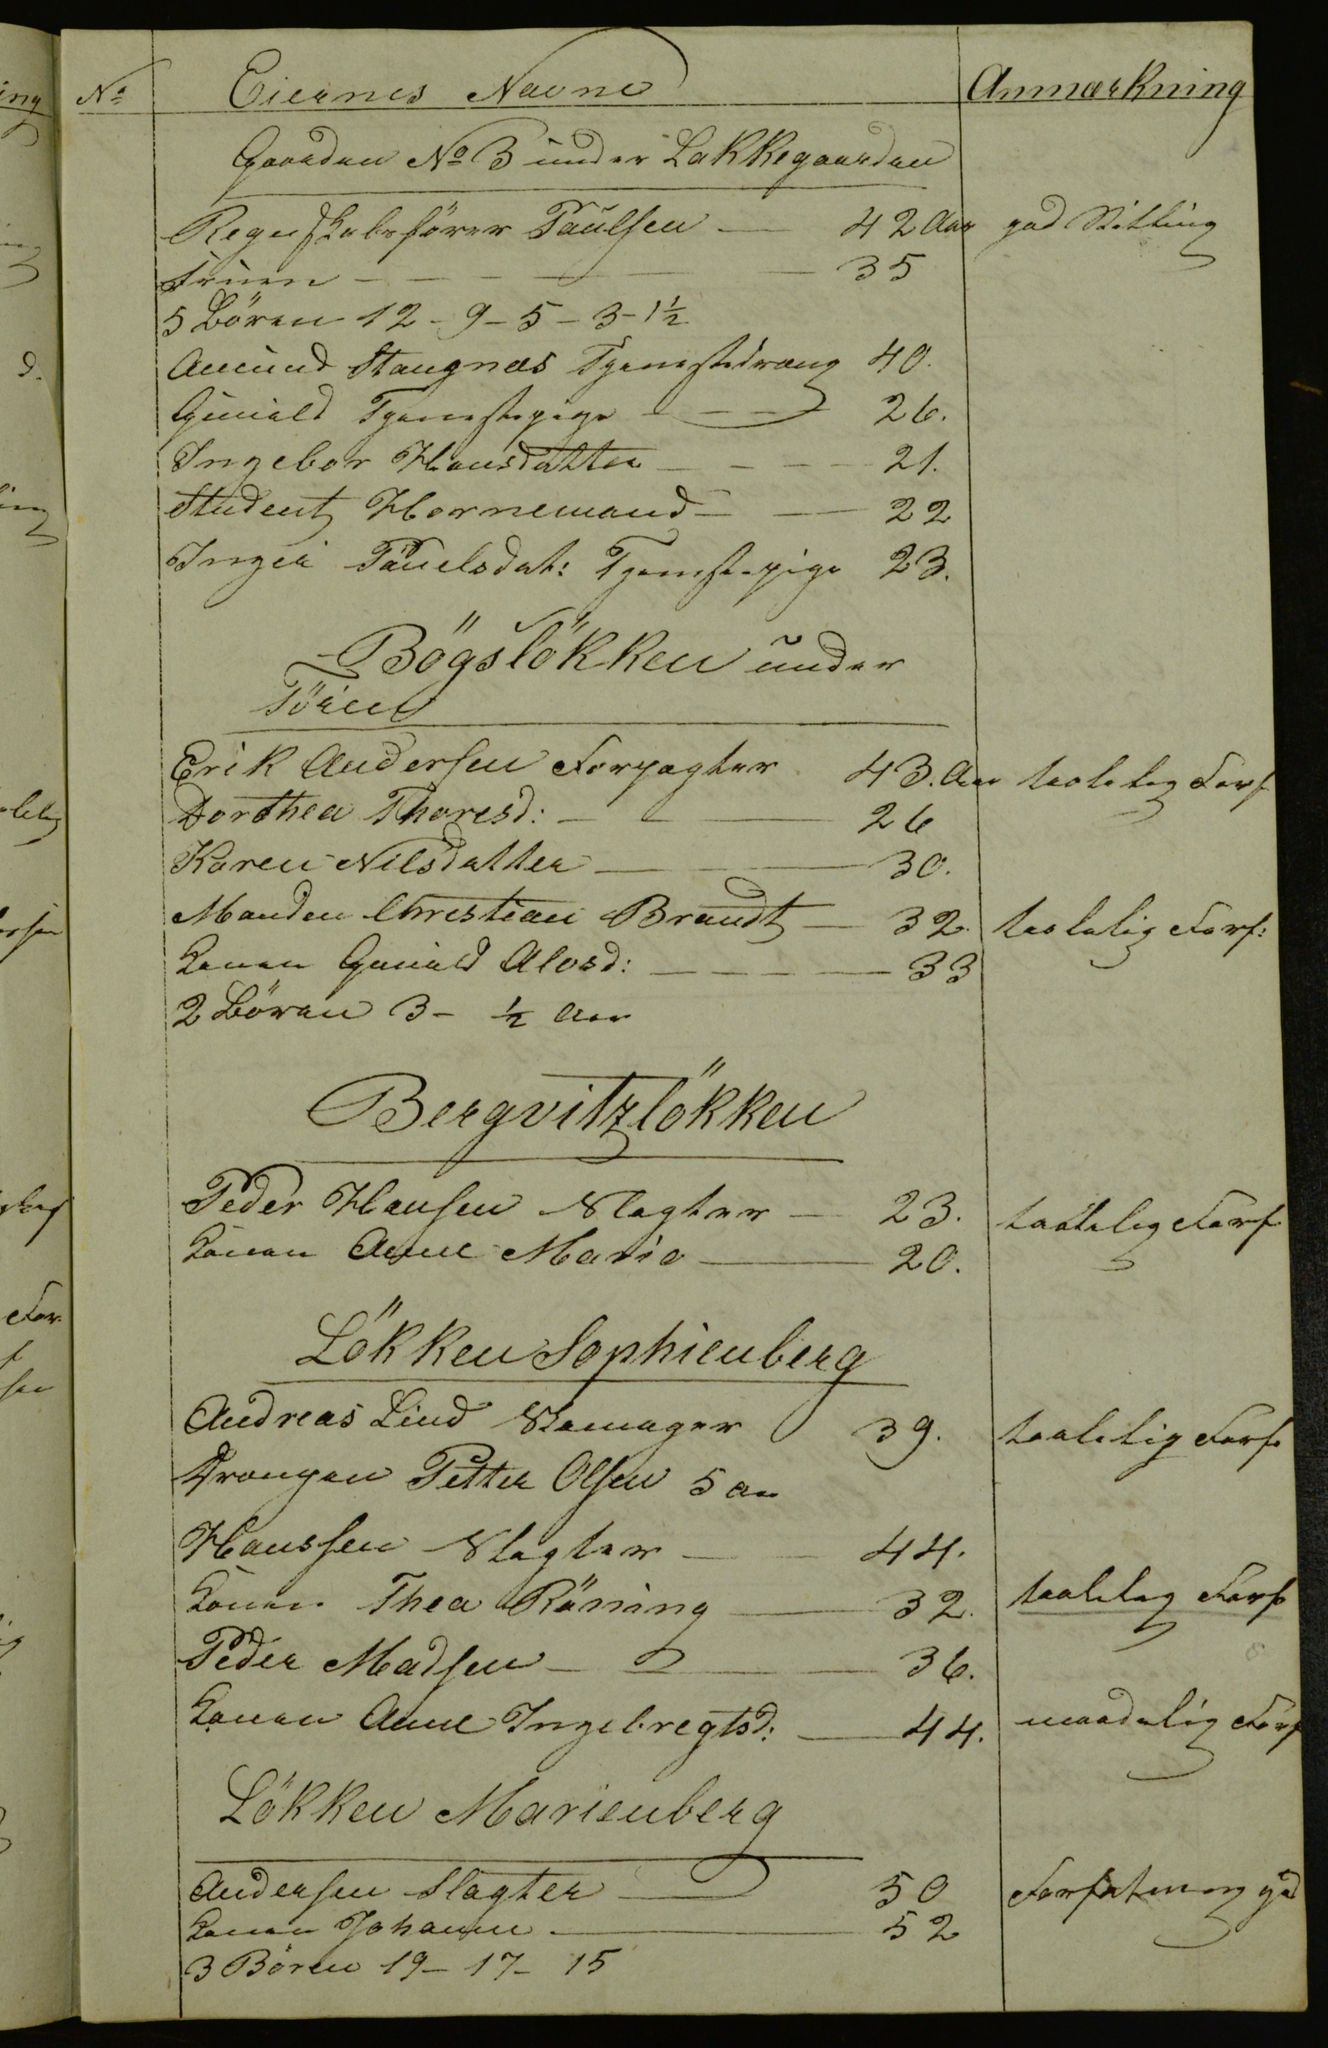 No Eiernes Navne Anmærkning
Gaarden No 3 under Lakkegaarden
Regnskabsförer Paulsen — 42 Aar god Stilling
Fruen — 35
5 Börn 12 - 9 - 5 - 3 - 1½
Amund Stangnæs Tjenestedræng 40.
Gunild Tjenestepige — 26.
Ingebor Hansdatter — 21.
Student Hornemand — 22
Inger Pauelsdat: Tjenestepige 23.
Bögslökken under
Töien
Erik Andersen Forpagter 43. Aar taalelig Forf
Dorthea Thoresd: — 26
Karen Nilsdatter — 30.
Manden Christian Brandt — 32. taalelig Forf:
Konen Gunild Alvsd: — 33
2 Börn 3 - ½ Aar
Bergvitzlökken
Peder Hansen Slagter — 23. taalelig Forf
Konen Anne Marie — 20.
Lökken Sophienberg
Andreas Lind Skomager 39. taalelig Forf.
Drengen Petter Olsen 5 Aar
Hanssen Slagter — 44.
Konen Thea Röning — 32. taalelig Forf
Peder Madsen — 36.
Konen Anne Ingebregtsd: — 44. maadelig Forf
Lökken Marienberg
Andersen Slagter — 50 Forfatning god
Konen Johanne — 52
3 Börn 19 - 17 - 15